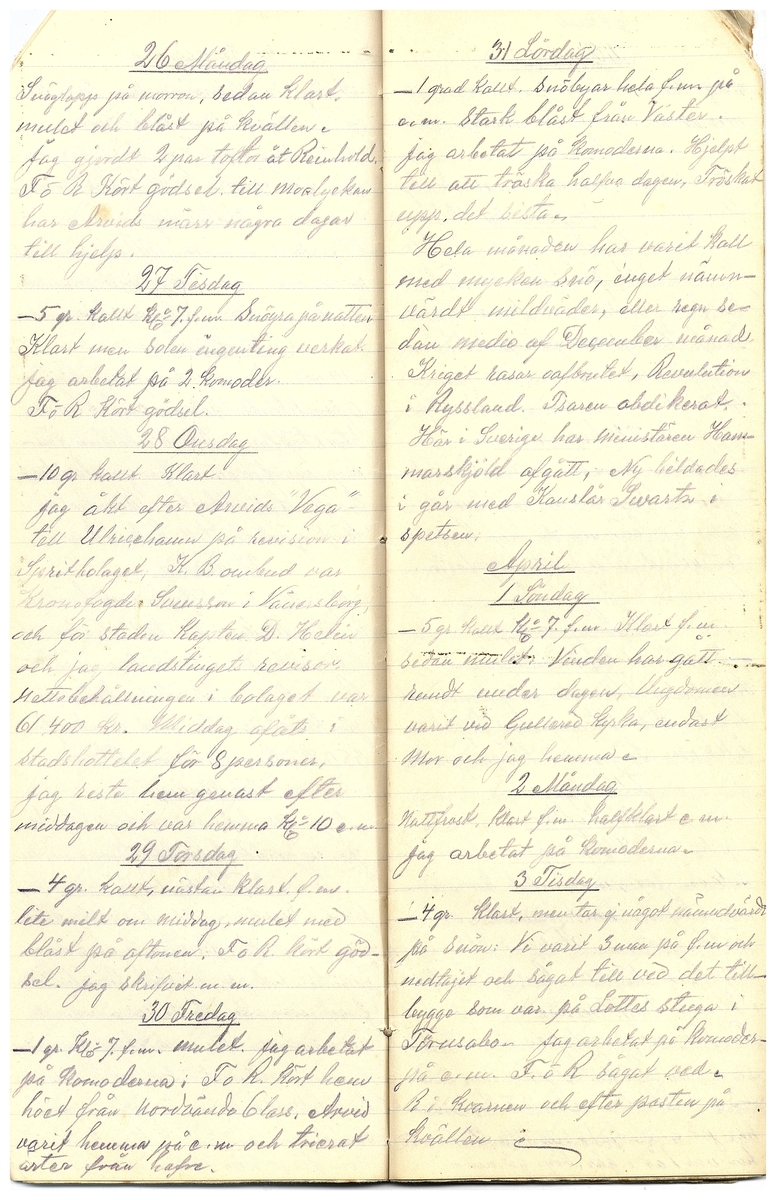 26 Måndag
Snöglopp på morron, sedan klart.
mulet och blåst på kvällen.
Jag gjordt 2 par tofflor åt Reinhold.
F o R Kört gödsel till
har Arvids märr några dagar
till hjelp.
27 Tisdag
-5 gr. kallt kl 7. f.m. Snöyra på natten
Klart men solen ingenting verkat.
jag arbetat på 2 komoder.
F o R Kört gödsel.
28 Onsdag
-10 gr kallt Klart.
jag åkt efter Arvids "Vega"
till Ulricehamn på revision i
Spritbolaget, K. B. ombud var
Kronofogde Svensson i Vänersborg,
och för staden Kapten D. Helin
och jag landstingets revisor.
Nettobehållningen i bolaget var
61 400 kr. Middag åfåts i
stadshottelet för 8 personer,
jag reste hem genast efter
middagen och var hemma kl 10 e.m.
29 Torsdag
-4 gr. kallt, nästan klart f.m.
lite milt om middag, mulet med
blåst på aftonen. F o R. kört göd-
sel. jag skrifvit m.m.
30 Fredag
-1 gr. Kl 7. f.m. mulet. jag arbetat
på komoderna; F o R. Kört hem
höet från Arvid
varit hemma på e.m och trierat
ärter från hafre.
31 Lördag
-1 grad kallt. Snöbyar hela f.m. på
e.m. stark blåst från Väster.
Jag arbetat på komoderna. Hjelpt
till att tröska halfva dagen, Tröskat
upp det sista.
Hela månaden har varit kall
med mycken snö, inget nämn-
värdt mildväder, eller regn se-
dan medio af December månad
Kriget rasar oafbrutet, Revolution
i Ryssland. Tsaren abdikerat.
Här i Sverige har ministären Ham-
marskjöld afgått, Ny bildades
i går med Kanslär Swartz i
spetsen.
April
1 Söndag
-5 gr kallt kl 7. f.m. Klart f.m.
sedan mulet. Vinden har gått
rundt under dagen, Ungdomen
varit vid Gullered kyrka, endast
Mor och jag hemma.
2 Måndag
Nattfrost, klart f.m. halfklart e.m.
jag arbetat på komoderna.
3 Tisdag
-4 gr. Klart, men tar ej något nämndvärdt
på snön: Vi varit 3 man på f.m och
nedtagit och sågat till ved det till-
bygge som var på Lottes stuga i
Jag arbetat på komoder-
på e.m. F. o R sågat ved.
R i kvarnen och efter posten på
kvällen